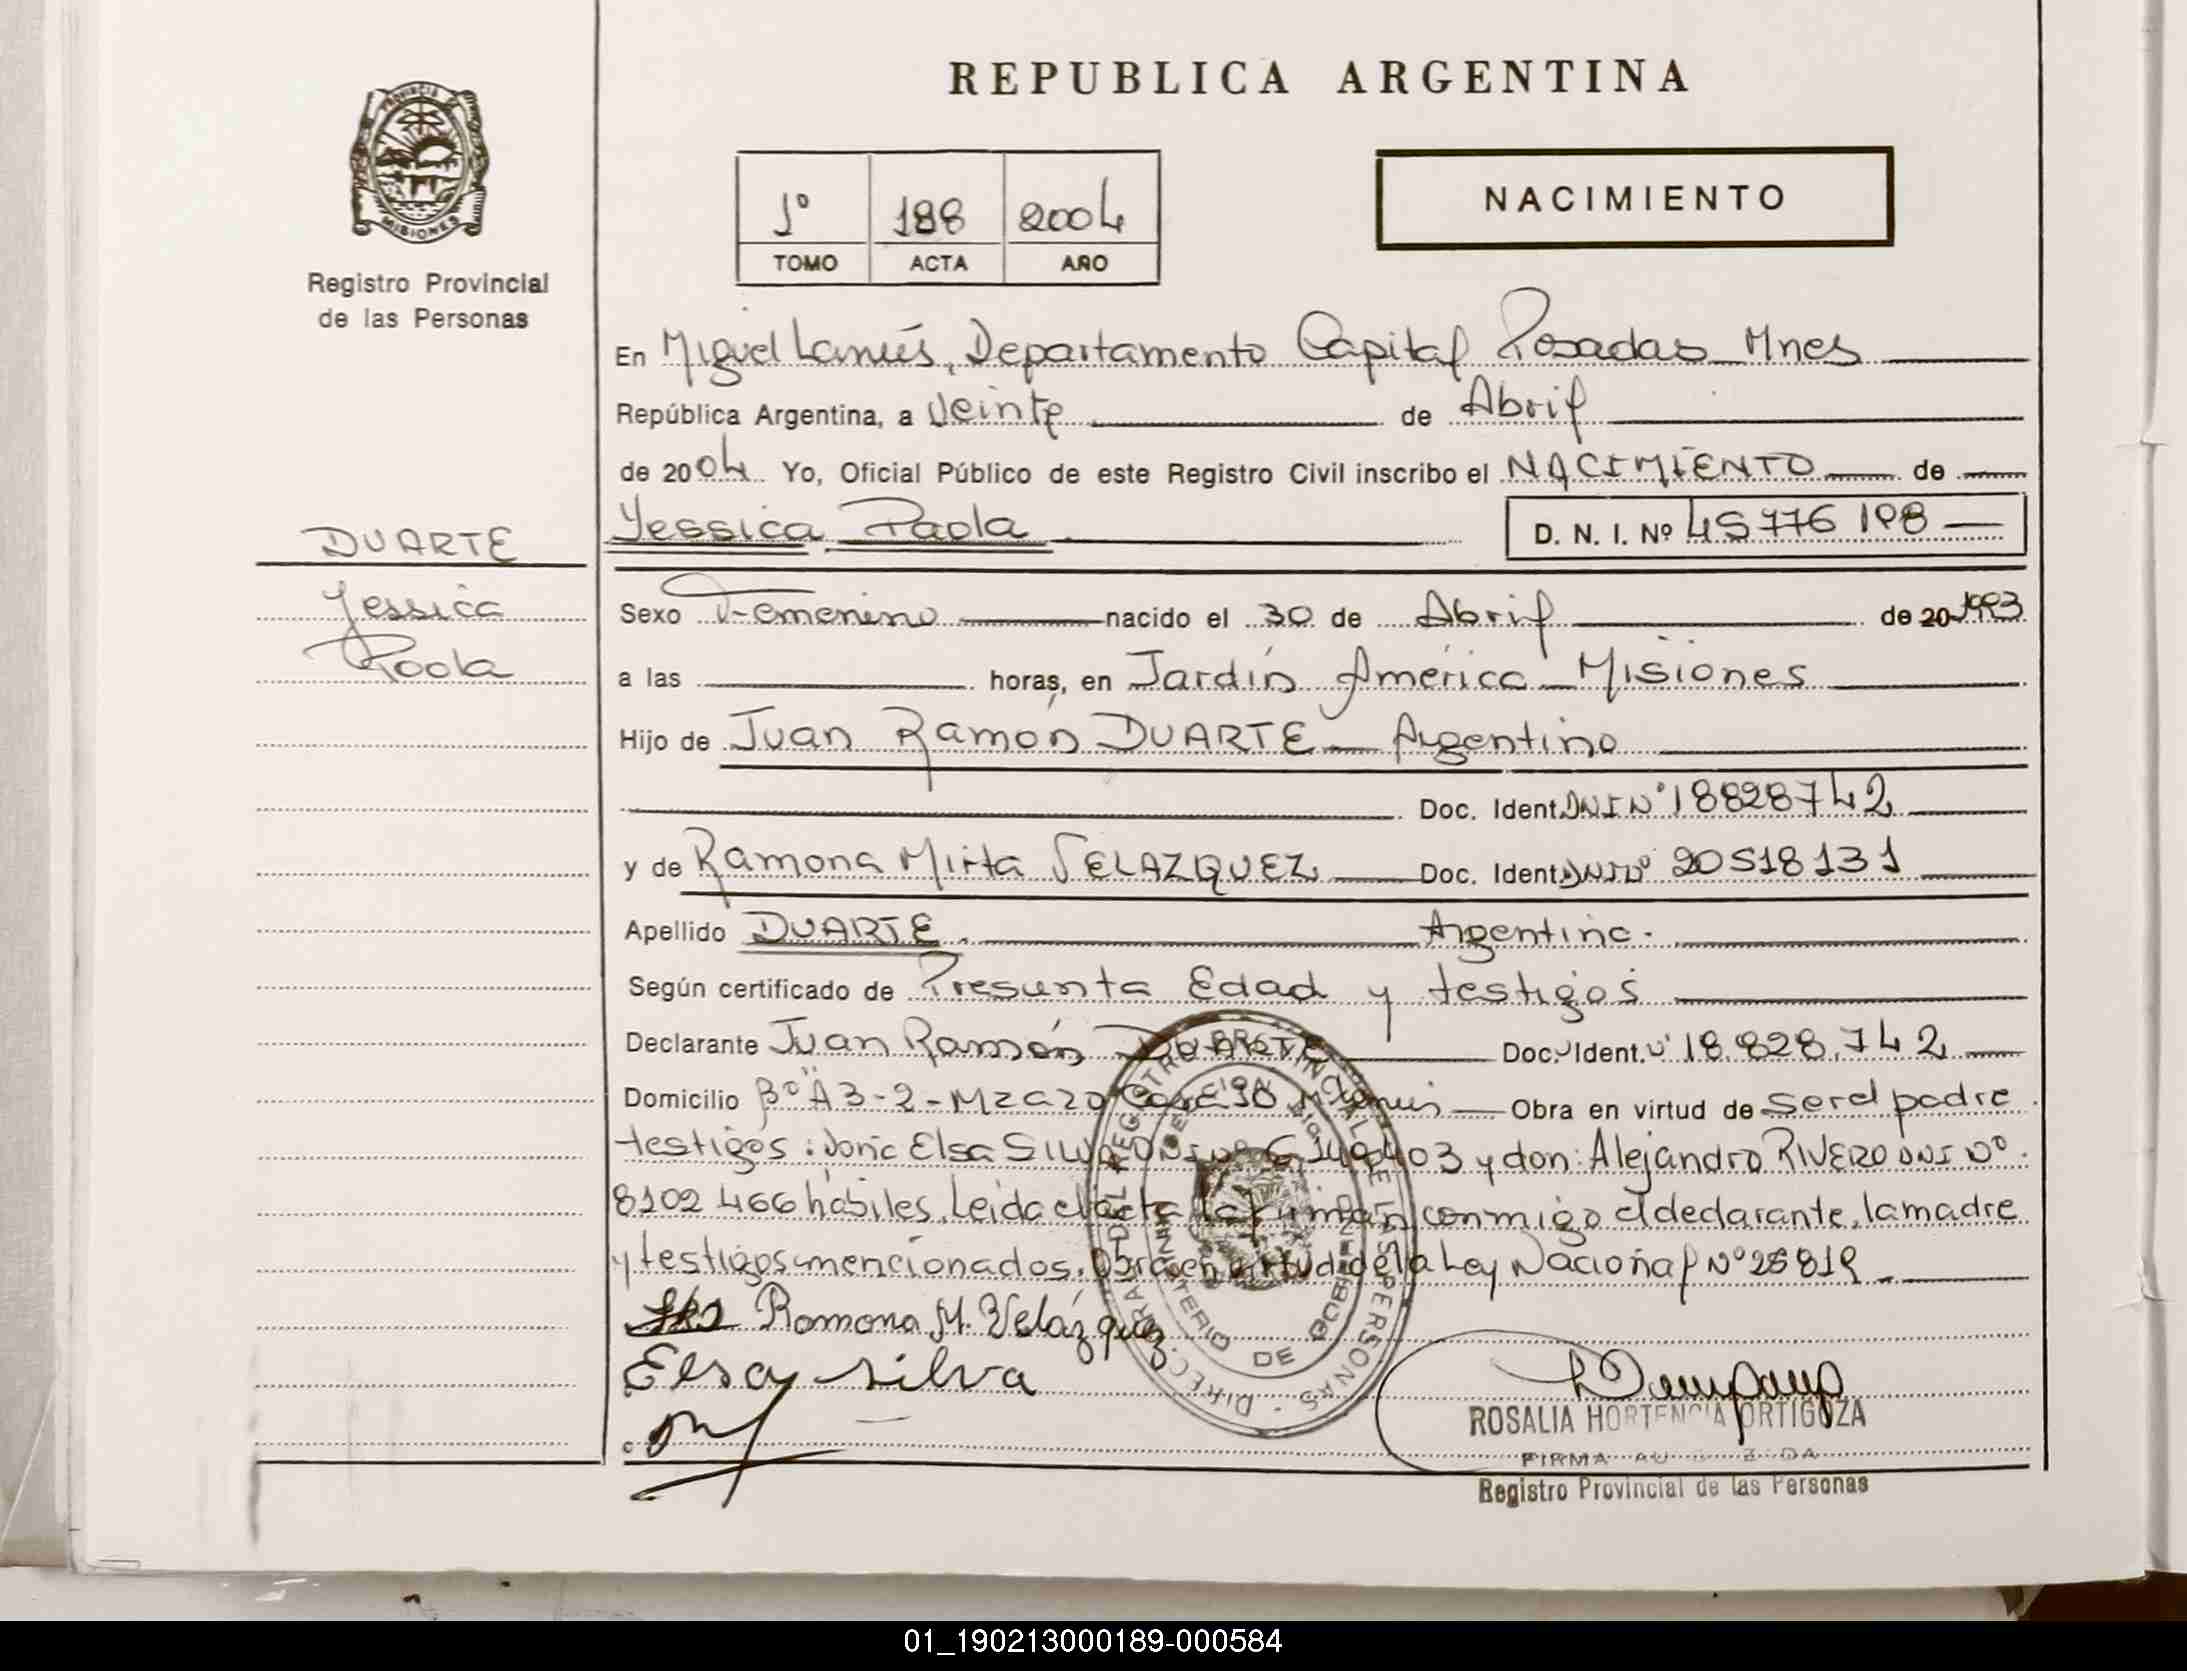 REPUBLICA ARGENTINA
PROVINCIA DE MISIONES
Registro Provincial
de las Personas
1º 188 2004
TOMO ACTA AÑO
NACIMIENTO
En Miguel Lanús, Departamento Capital Posadas Mnes
República Argentina, a veinte de Abril
de 2004 Yo, Oficial Público de este Registro Civil inscribo el NACIMIENTO de
Yessica Paola D. N. I. Nº 45776198
DUARTE
Yessica
Paola
Sexo Femenino nacido el 30 de Abril de 20 1993
a las horas, en Jardín América Misiones
Hijo de Juan Ramón DUARTE Argentino
Doc. Ident. DNI Nº 18828742
y de Ramona Mirta VELAZQUEZ Doc. Ident. DNI Nº 20518131
Apellido DUARTE. Argentina.
Según certificado de Presunta Edad y testigos
Declarante Juan Ramón DUARTE Doc. Ident. Nº 18.828.742
Domicilio Bº "A 3-2- Mza 20 Casa 10 M. Lanús Obra en virtud de ser el padre.
testigos: doña Elsa SILVA DNI Nº 6149403 y don: Alejandro RIVERO DNI Nº
8102466 hábiles. Leída el acta la firman conmigo el declarante, la madre
y testigos mencionados. Obra en virtud de la Ley Nacional Nº 25819.
Ramona M. Velázquez
Elsa Silva
DIREC. GRAL. DEL REGISTRO PROVINCIAL DE LAS PERSONAS
MINISTERIO DE GOBIERNO
ROSALIA HORTENCIA ORTIGOZA
FIRMA AU
Registro Provincial de las Personas
01_190213000189-000584